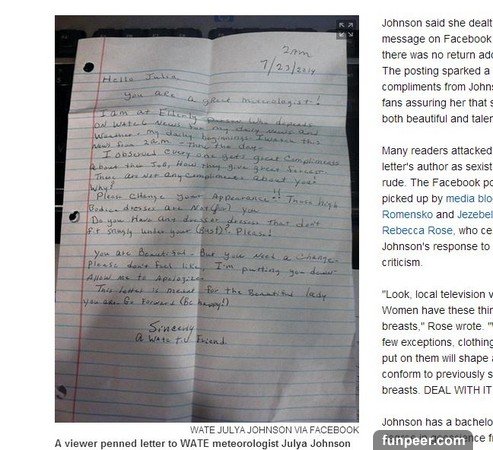 2 AM
7/23/2014
Hello Julia
You are a great meteorologist!
I am at Elderly Person who depends
ON WATE 6 News for my daily News and
Weather - My daily beginning I watch this
News from 2am
I observed every one gets great Compliments
About their Job, How they give great Service.
There are not any compliments about you!
Why?
Please Change Your Appearance!! Those high
Bodice dresses are Not (for) you
Do you Have any dresses that don't
fit snugly under your (Bust)?. Please!
You are Beautiful - But you Need a Change
Please don't feel like I'm putting you down
Allow me to Apologize
This Letter is meant for the Beautiful lady
you are. Go Forward (be happy!)
Sincerely
A Wate T.V Friend
WATE JULYA JOHNSON VIA FACEBOOK
A viewer penned letter to WATE meteorologist Julya Johnson
Johnson said she dealt
message on Facebook
there was no return
The posting sparked a
compliments from
fans assuring her that
both beautiful and
Many readers attacked
letter's author as
rude. The Facebook
picked up by media
Romensko and Jezebel
Rebecca Rose, who
Johnson's response to
criticism.
"Look, local television
Women have these
breasts," Rose wrote.
few exceptions, clothing
put on them will shape
conform to previously
breasts. DEAL WITH IT
Johnson has a
funpeer.com